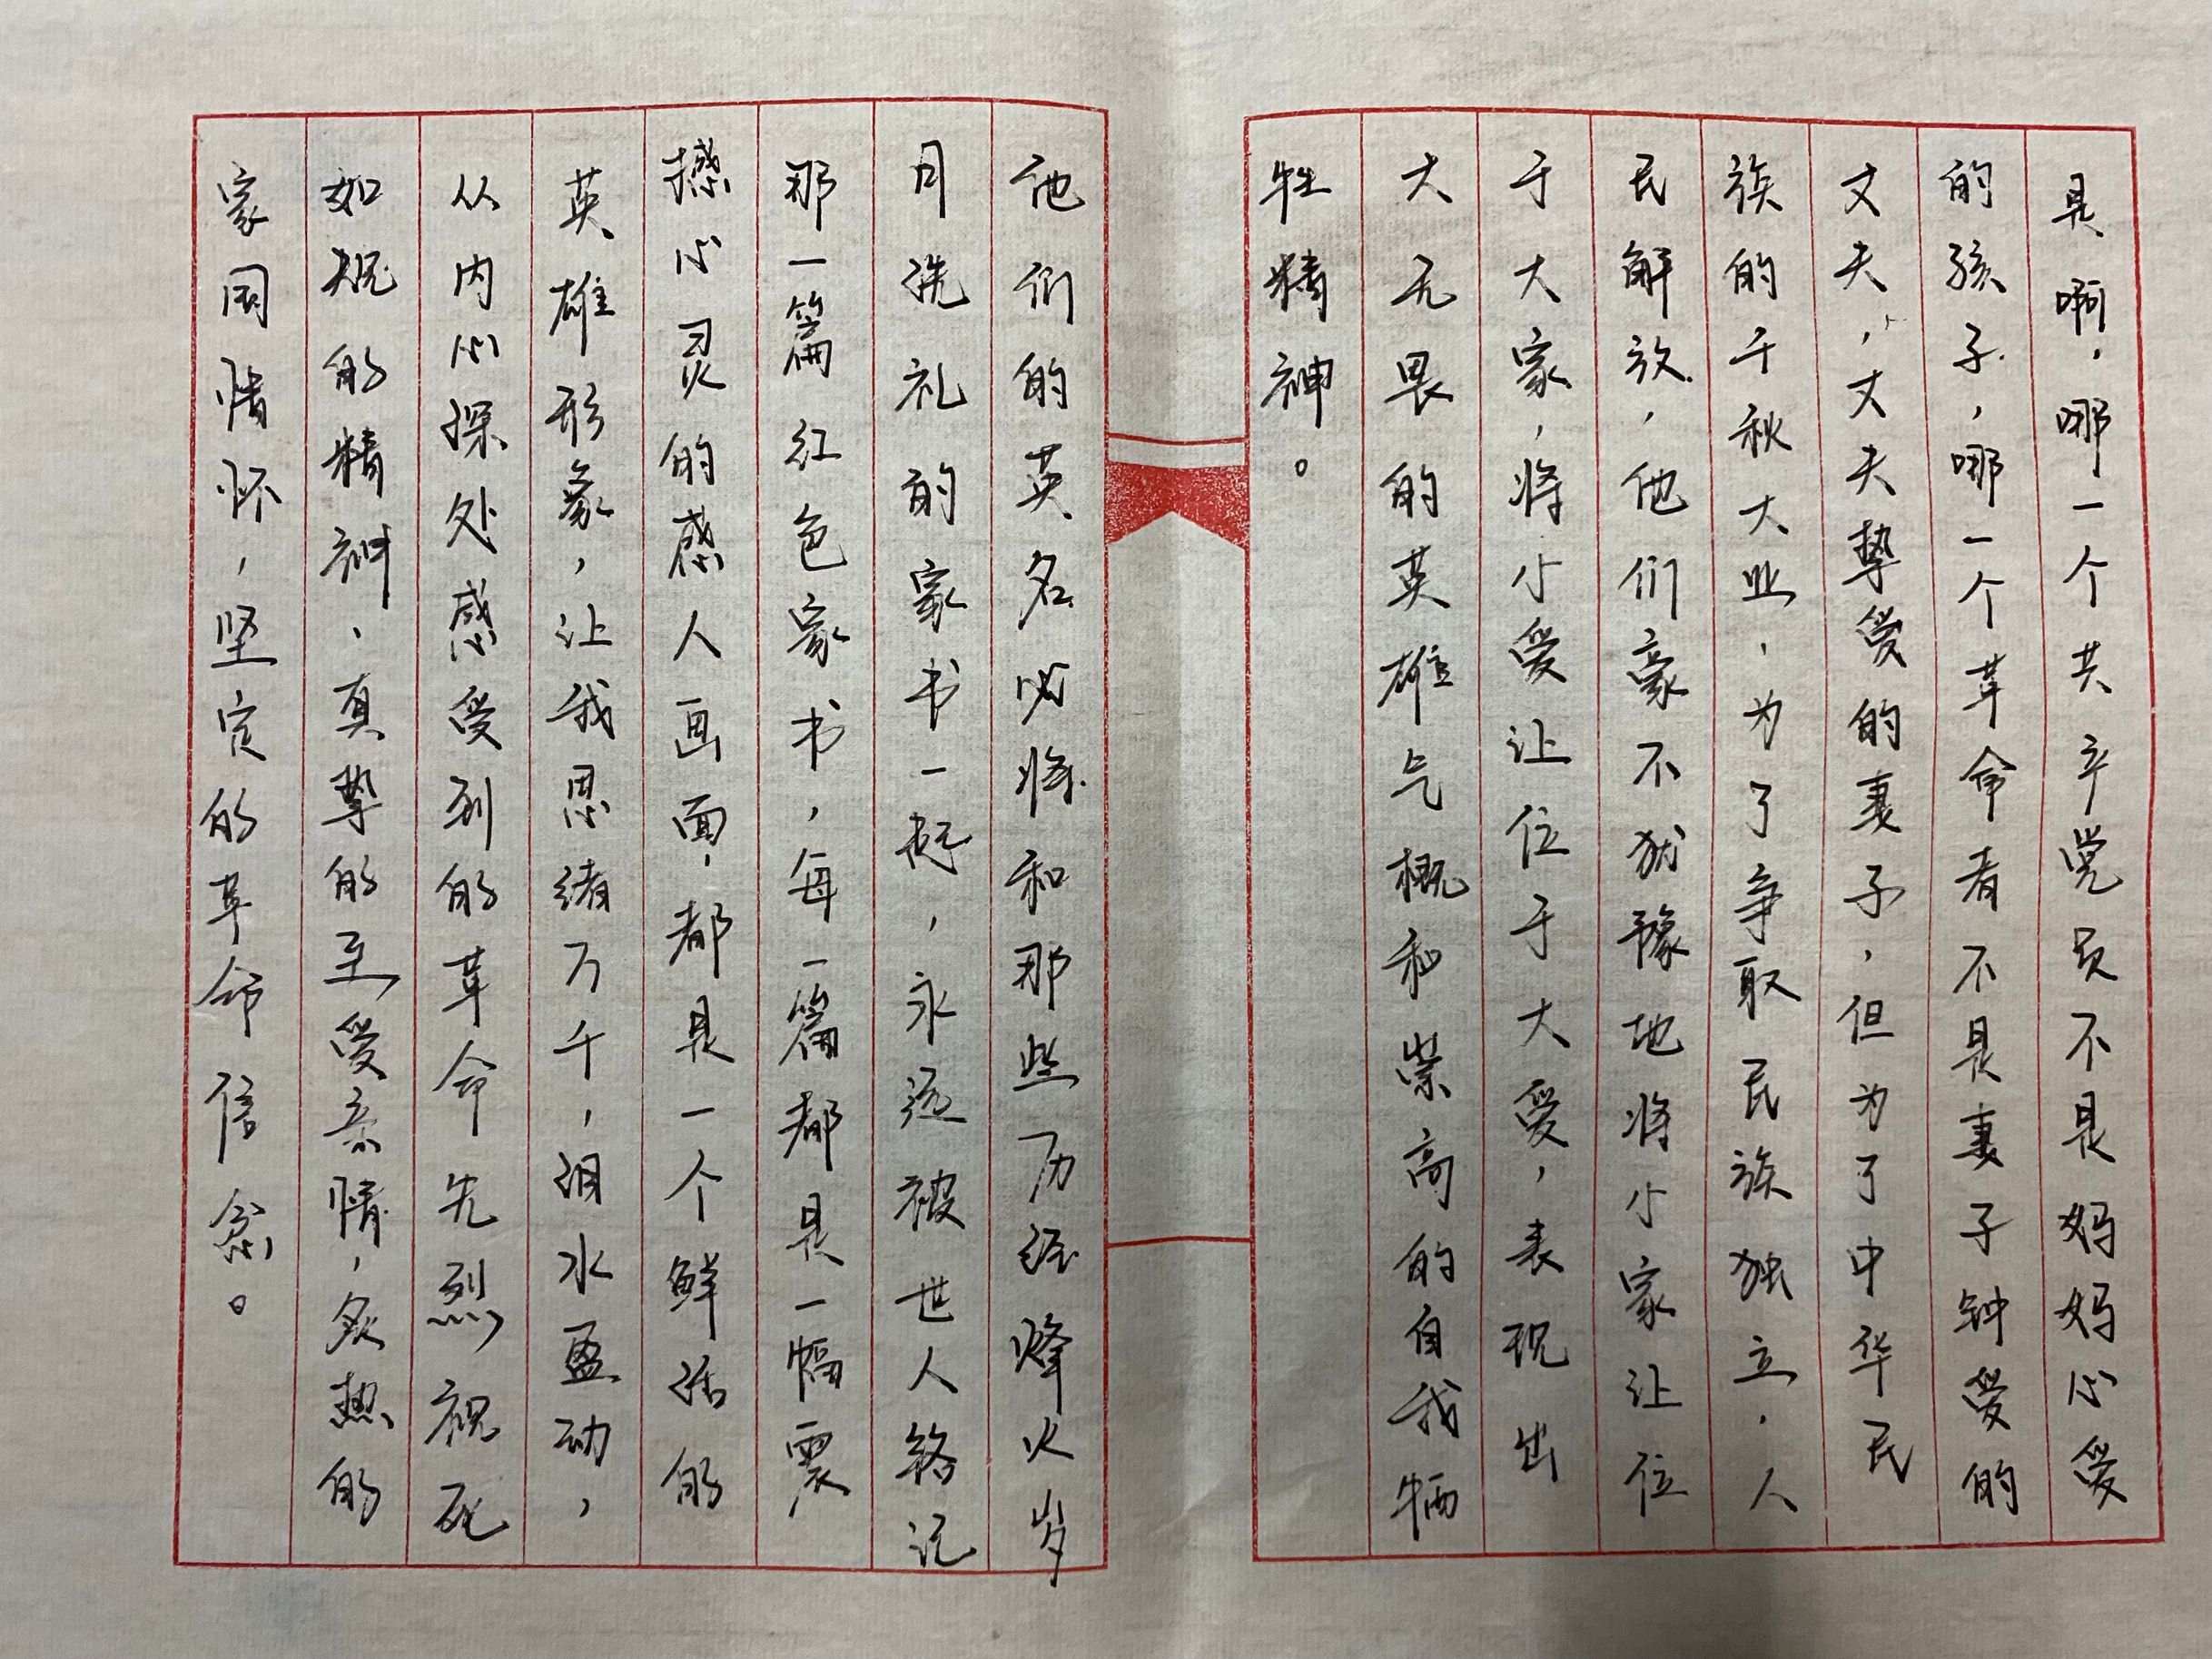 是啊，哪一个共产党员不是妈妈心爱
的孩子，哪一个革命者不是妻子钟爱的
丈夫，丈夫挚爱的妻子，但为了中华民
族的千秋大业，为了争取民族独立，人
民解放，他们豪不犹豫地将小家让位
于大家，将小爱让位于大爱，表现出
大无畏的英雄气概和崇高的自我牺
牲精神。
他们的英名必将和那些历经烽火岁
月洗礼的家书一起，永远被世人铭记
那一篇红色家书，每一篇都是一幅震
撼心灵的感人画面，都是一个鲜活的
英雄形象，让我思绪万千，泪水盈动，
从内心深处感受到的革命先烈视死
如归的精神、真挚的至爱亲情，炙热的
家国情怀，坚定的革命信念。